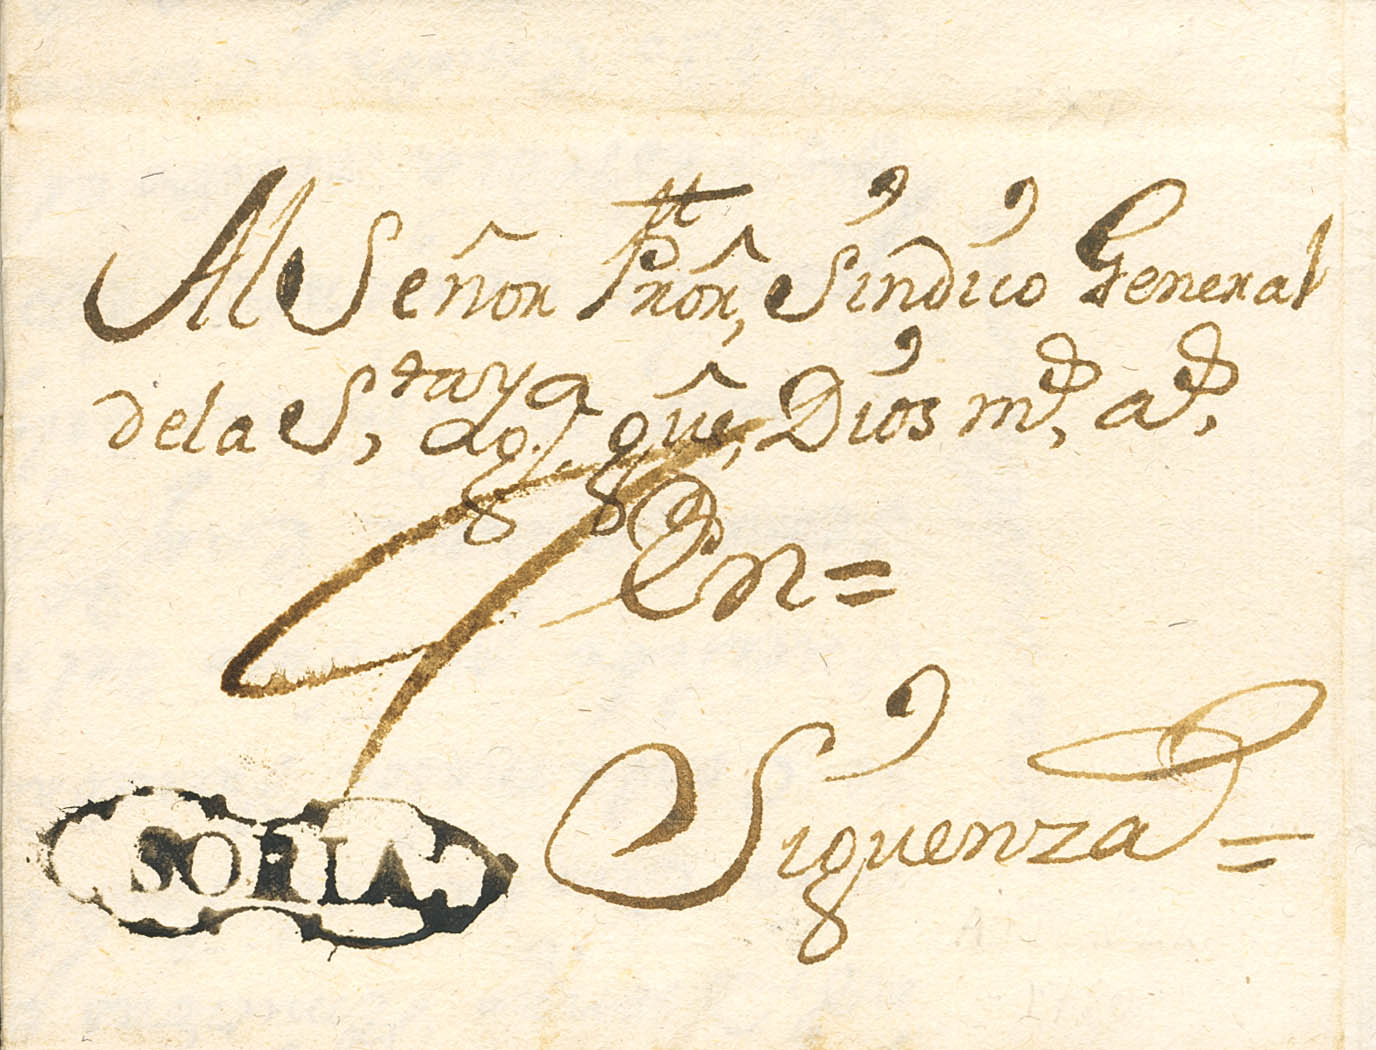 Al Señor Pror, Sindico General
de la S,ta y a que, Dios m.s a.s,
En =
Siguenza =
SORIA